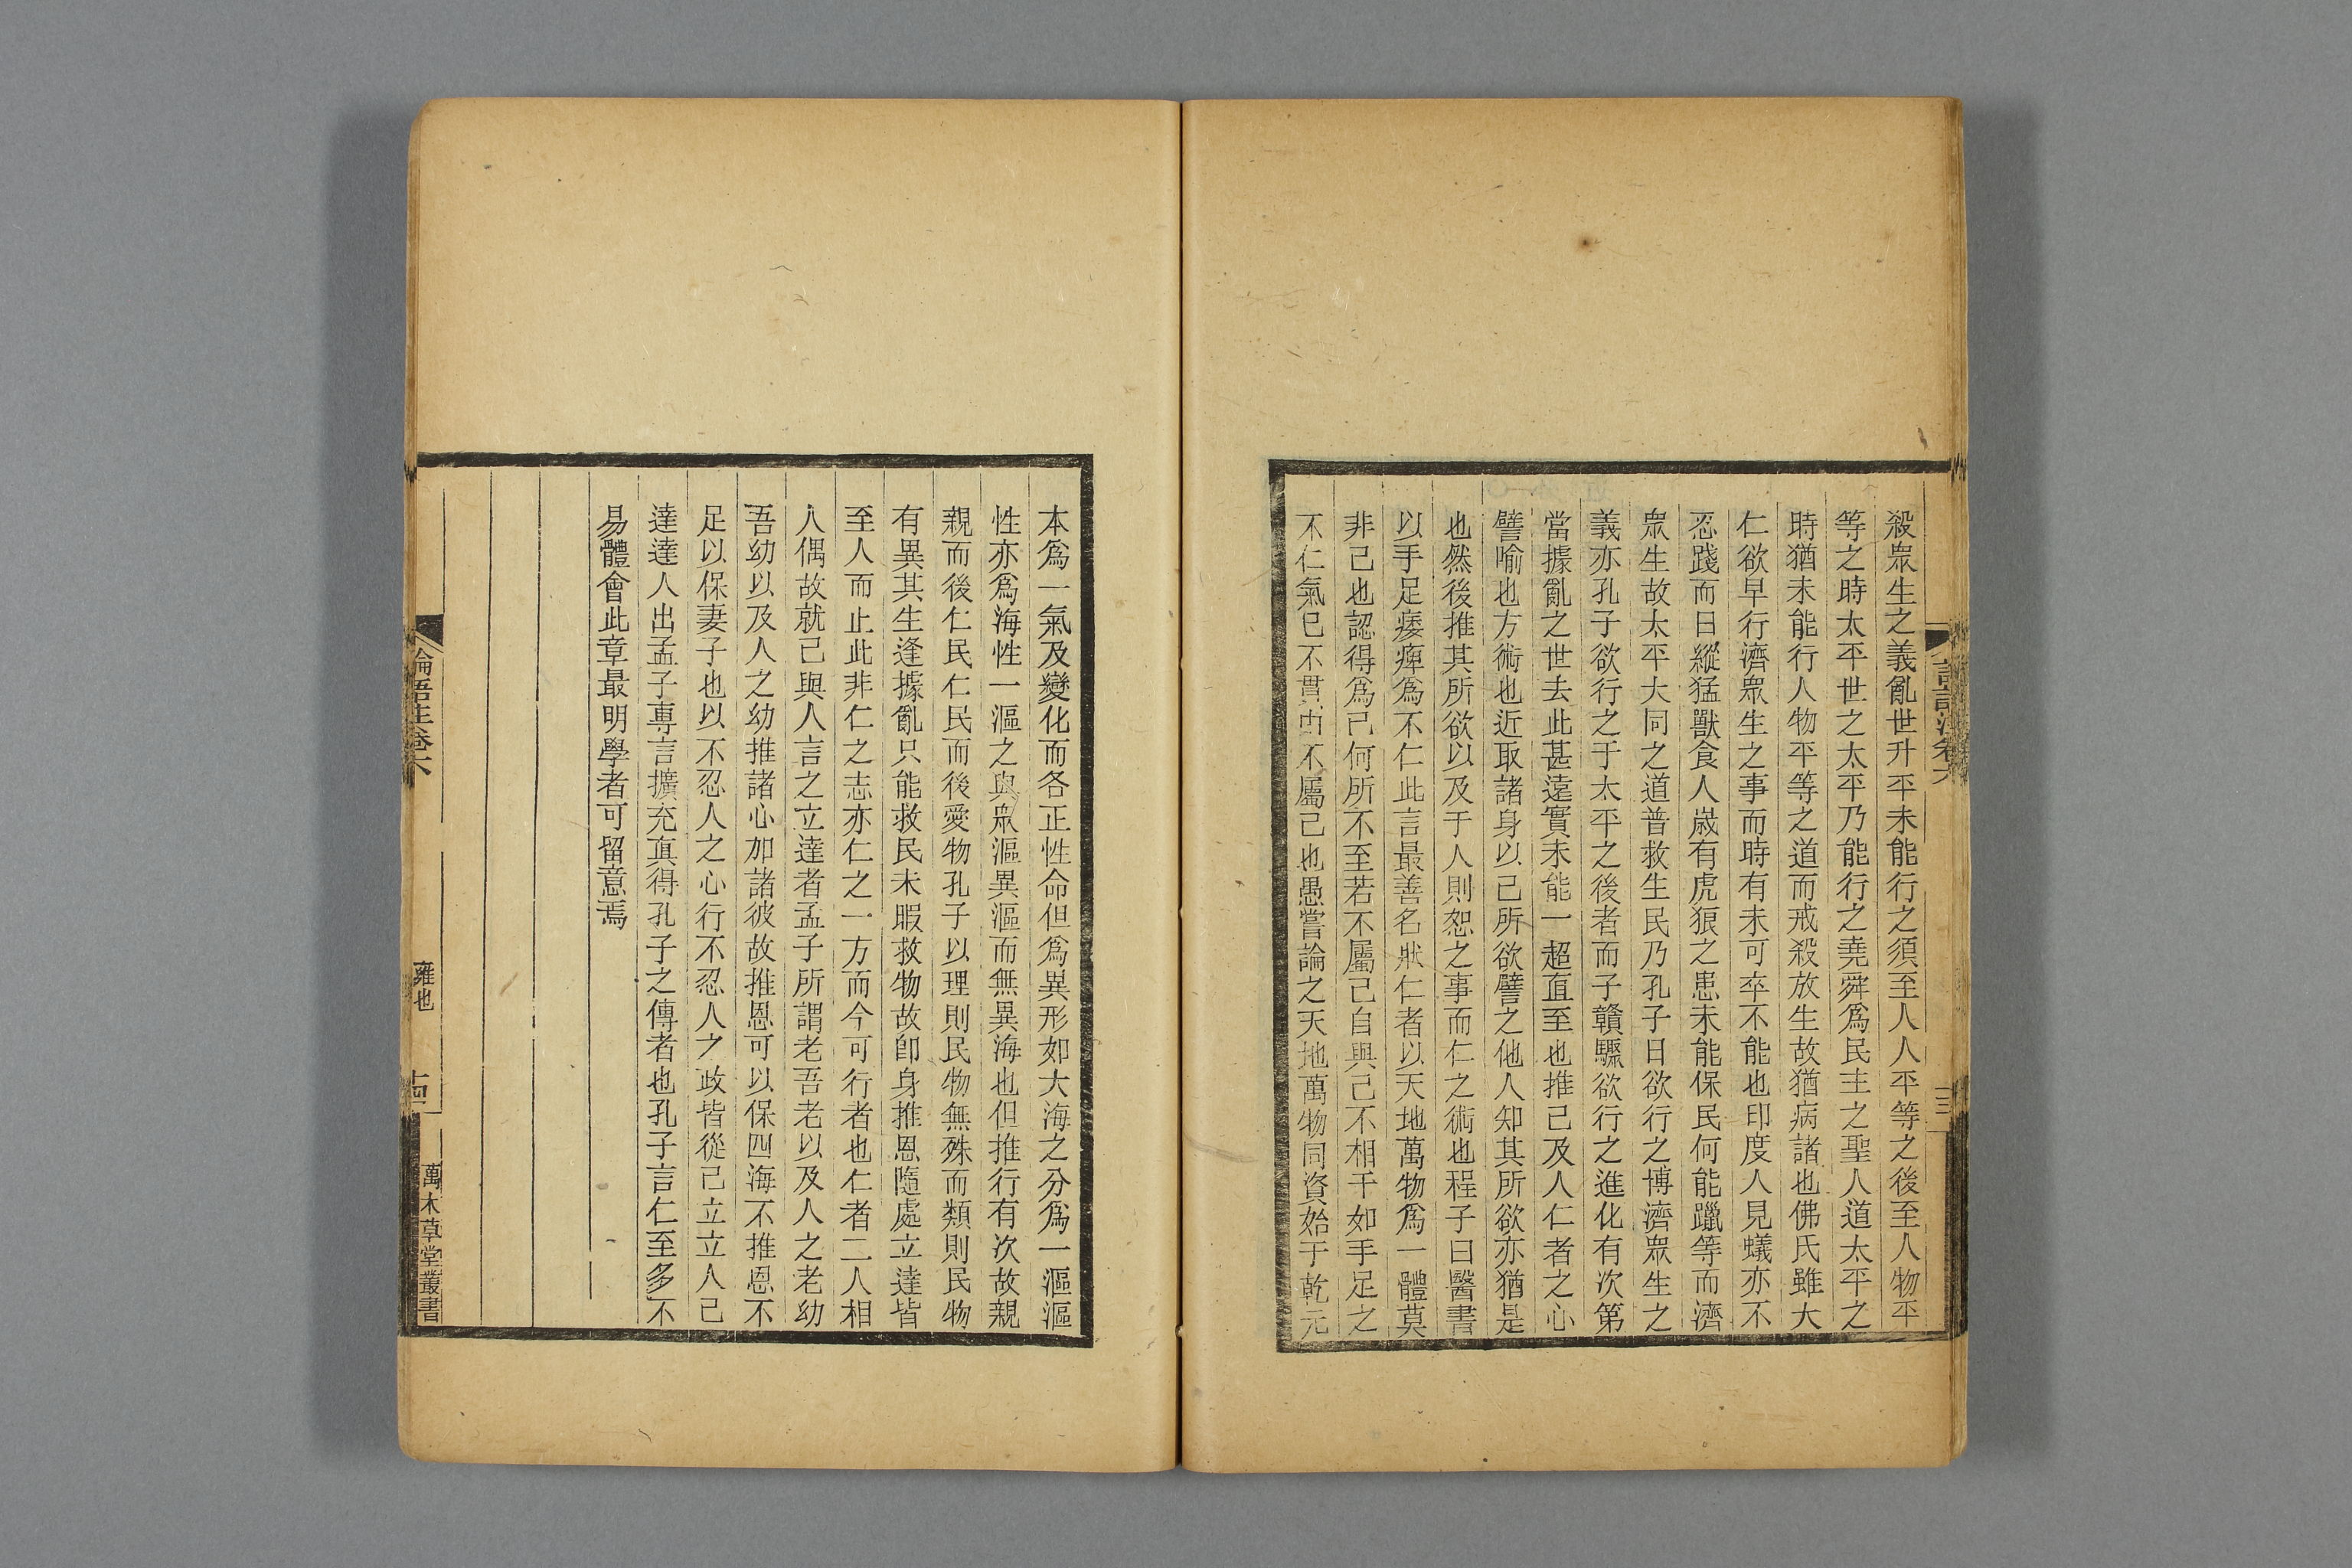 殺衆生之義亂世升平未能行之須至人人平等之後至人物平
等之時太平世之太平乃能行之堯舜爲民主之聖人道太平之
時猶未能行人物平等之道而戒殺放生故猶病諸也佛氏雖大
仁欲早行濟衆生之事而時有未可卒不能也印度人見蟻亦不
忍踐而日縱猛獸食人歲有虎狼之患未能保民何能躐等而濟
衆生故太平大同之道普救生民乃孔子日欲行之博濟衆生之
義亦孔子欲行之于太平之後者而子贛驟欲行之進化有次第
當據亂之世去此甚遠實未能一超直至也推己及人仁者之心
譬喻也方術也近取諸身以己所欲譬之他人知其所欲亦猶是
也然後推其所欲以及于人則恕之事而仁之術也程子曰醫書
以手足痿痺爲不仁此言最善名狀仁者以天地萬物爲一體莫
非己也認得爲己何所不至若不屬己自與己不相干如手足之
不仁氣已不貫皆不屬己也愚嘗論之天地萬物同資始于乾元
論語注卷六
本爲一氣及變化而各正性命但爲異形如大海之分爲一漚漚
性亦爲海性一漚之與衆漚異漚而無異海也但推行有次故親
親而後仁民仁民而後愛物孔子以理則民物無殊而類則民物
有異其生逢據亂只能救民未暇救物故卽身推恩隨處立達皆
至人而止此非仁之志亦仁之一方而今可行者也仁者二人相
人偶故就己與人言之立達者孟子所謂老吾老以及人之老幼
吾幼以及人之幼推諸心加諸彼故推恩可以保四海不推恩不
足以保妻子也以不忍人之心行不忍人之政皆從己立立人己
達達人出孟子專言擴充眞得孔子之傳者也孔子言仁至多不
易體會此章最明學者可留意焉
論語注卷六
雍也
十四
萬木草堂叢書